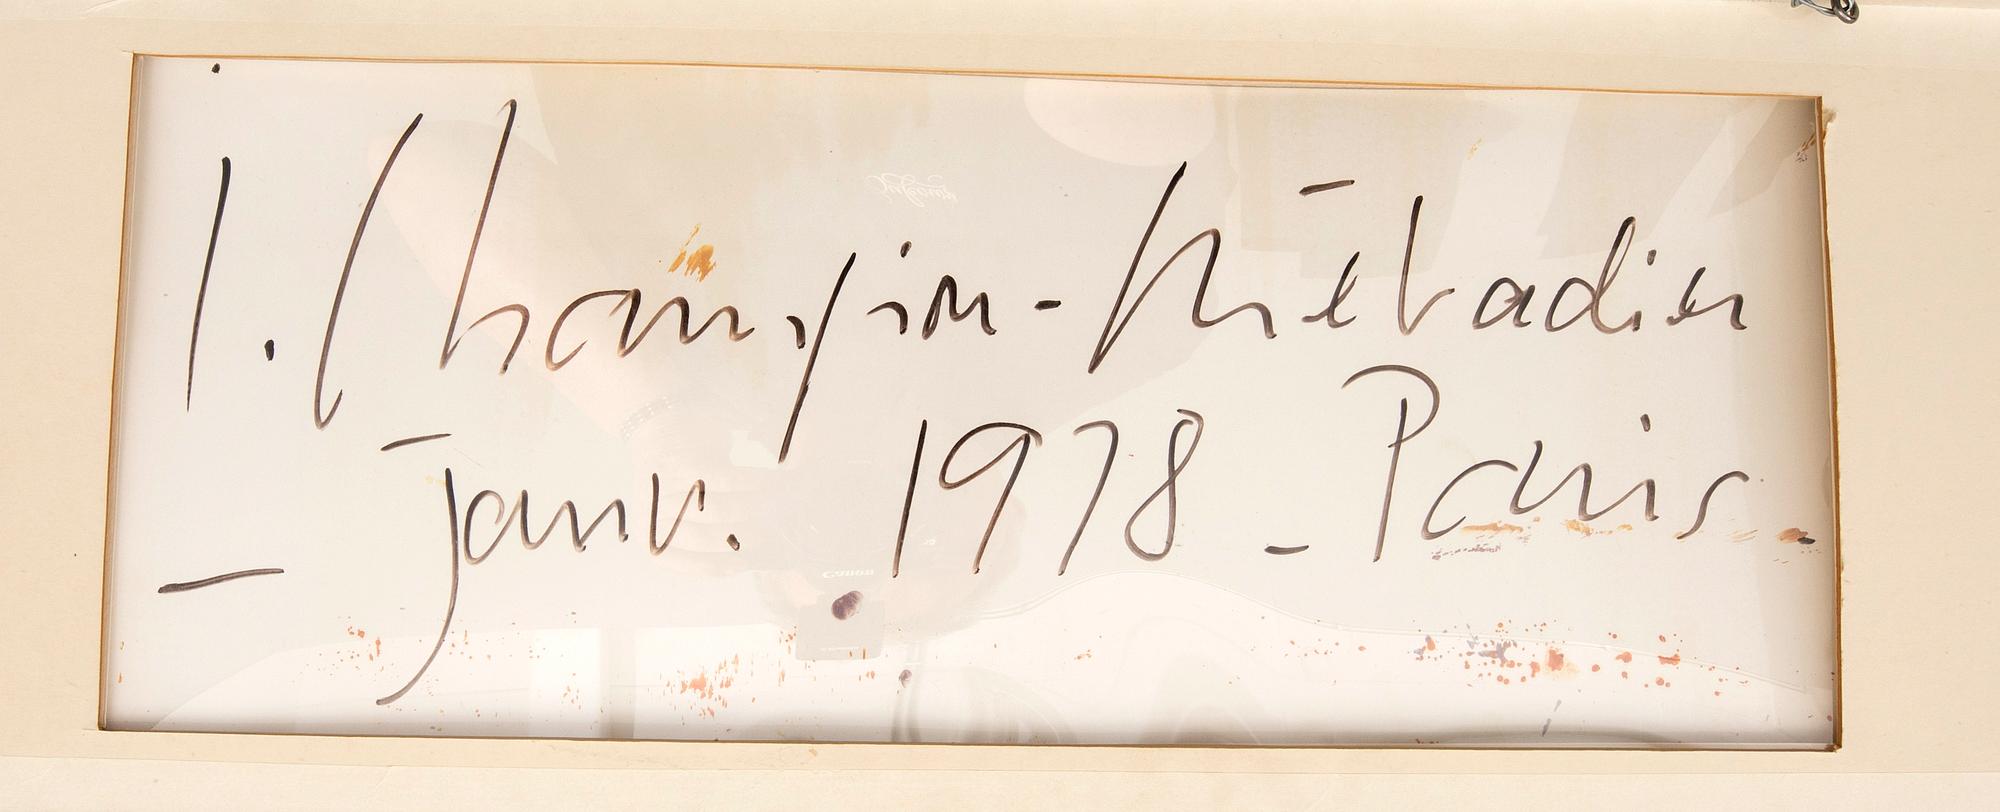 I. Champion-Métadier
– janv. 1978 – Paris –
Canon